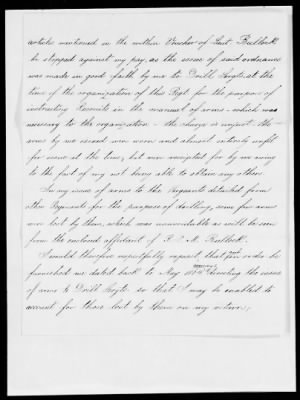 articles mentioned in the within Voucher of Lieut. Bullock
be stopped against my pay, as the issue of said ordnance
was made in good faith by me to Drill Sergts. at the
time of the organization of this Regt. for the purpose of
instructing Recruits in the manual of arms - which was
necessary to the organization - the charge is unjust. The
arms by me issued were worn and almost entirely unfit
for issue at the time, but were receipted for by me owing
to the fact of my not being able to obtain any other.
In my issue of arms to the Sergeants detailed from
other Regiments for the purpose of drilling, some few arms
were lost by them, which was unavoidable as will be seen
from the enclosed affidavit of Bullock.
I would therefore respectfully request, that an order be
furnished me dated back to May 1864 directing the issue
of arms to Drill Sergts. so that I may be enabled to
account for those lost by them on my returns,